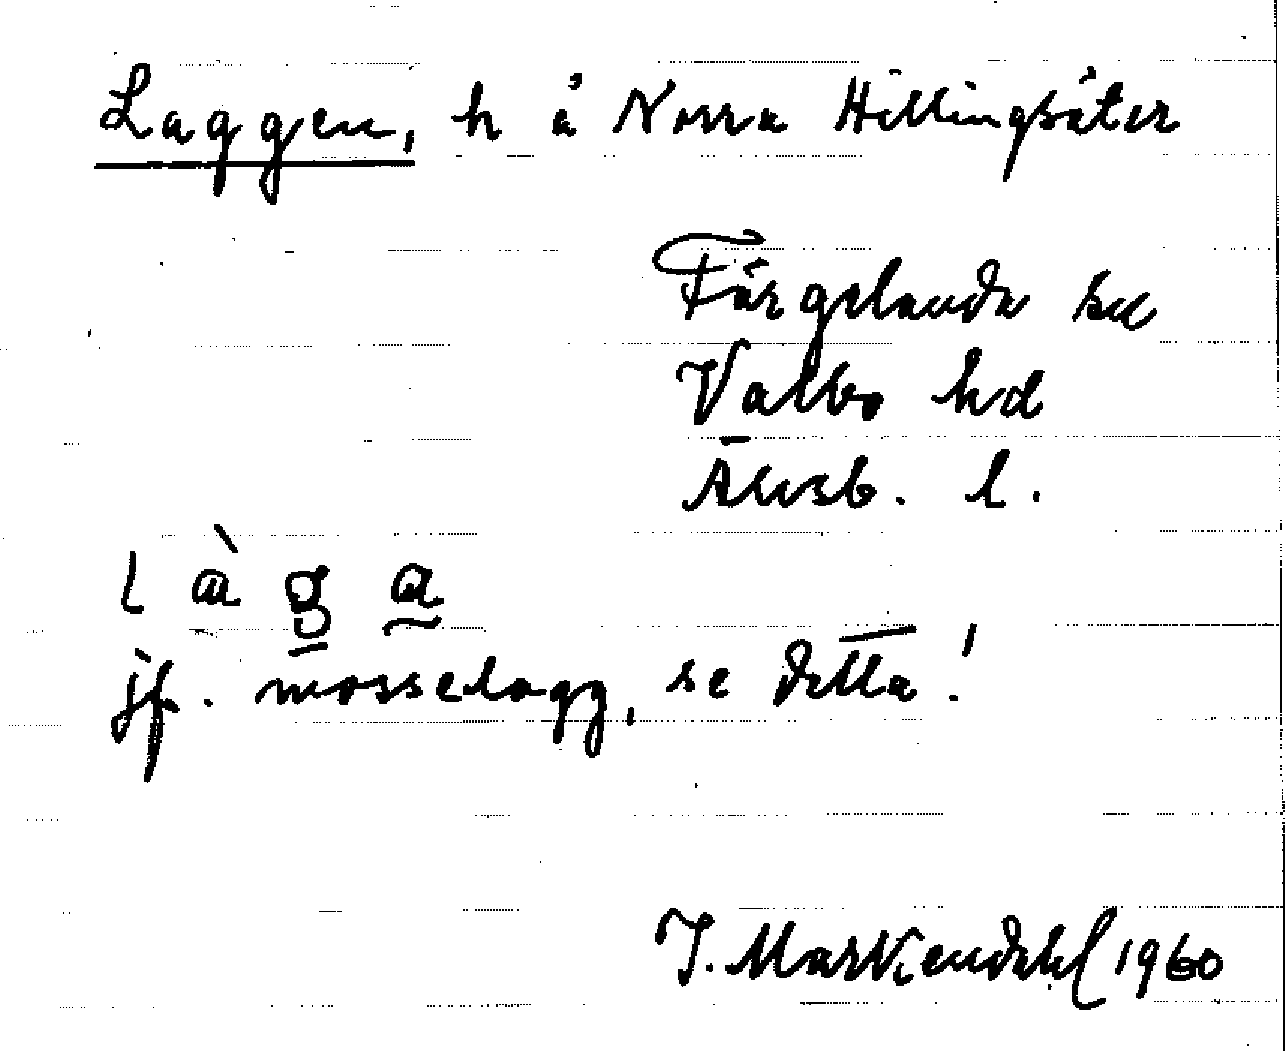 Laggen, h å Norra Hillingsäter
Färgelanda sn
Valbo hd
Älvsb. l.
l à g a
jf. mosselagg, se detta!
J. Markendahl 1960